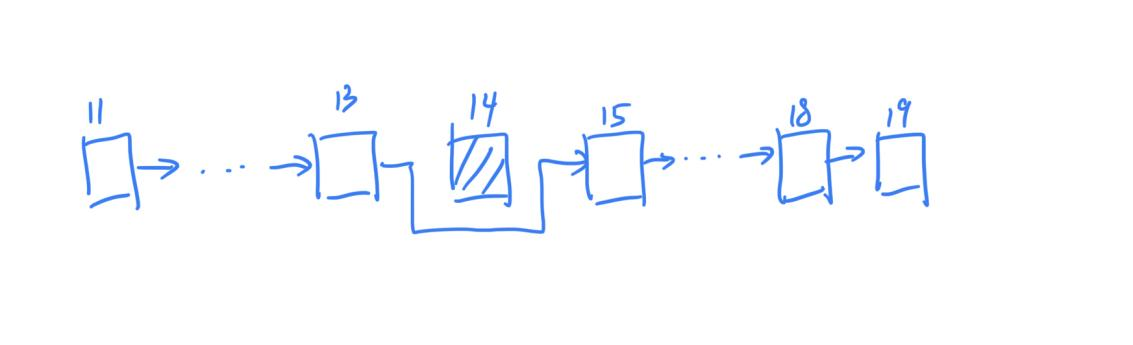 11 13 14 15 18 19
... ...